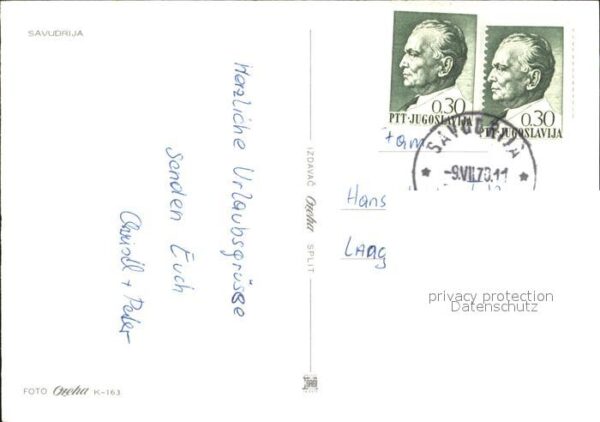 SAVUDRIJA
Herzliche Urlaubsgrüsse
Senden Euch
Christl + Peter
FOTO Ozeha K-163
IZDAVAČ Ozeha SPLIT
0.30
PTT-JUGOSLAVIJA
0.30
PTT-JUGOSLAVIJA
SAVUDRIJA
-9.VII.70.11
Fam
Hans
Laag
privacy protection
Datenschutz